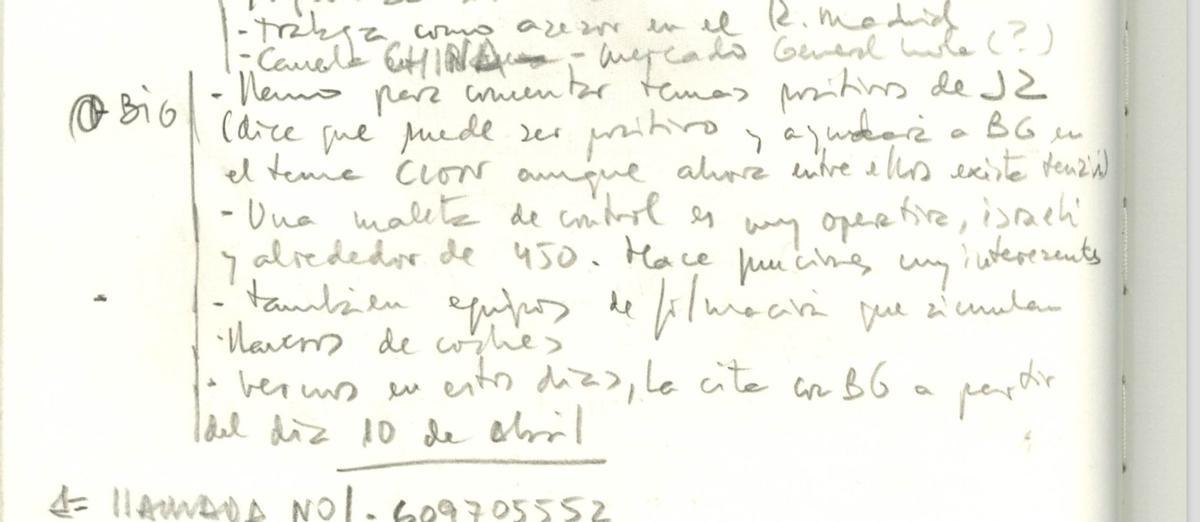 - trabaja como asesor en el R. Madrid
- Canela CHINA - mercado General Mola (?)
BIG - Llamo para comentar temas positivos de JZ
(dice que puede ser positivo y ayudará a BG en
el tema aunque ahora entre ellos existe tensión)
- Una maleta de control es muy operativa, israelí
y alrededor de 450. Hace funciones muy interesantes
- también equipos de filmación que simulan
llaveros de coches
- vernos en estos días, la cita con BG a partir
del día 10 de abril
1= LLAMADA NO/. 609705552